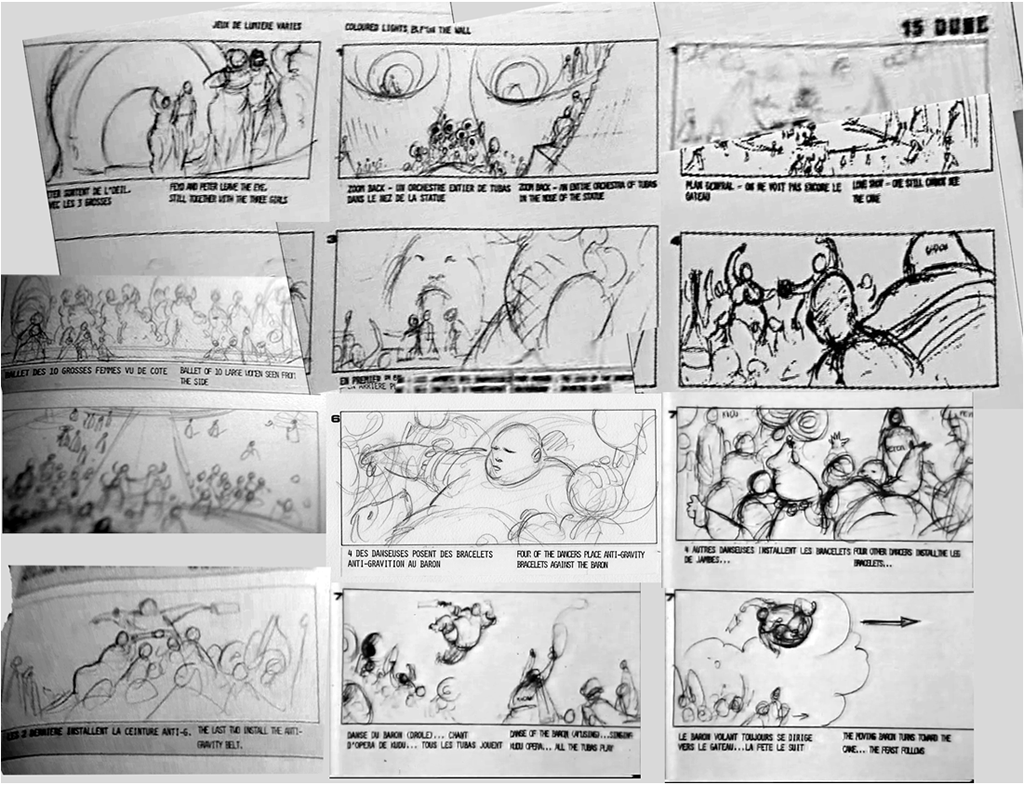 JEUX DE LUMIERE VARIES
COLOURED LIGHTS
THE WALL
15 DUNE
SORTENT DE L'OEIL.
LES 3 GROSSES
FEYD AND PETER LEAVE THE EYE.
STILL TOGETHER WITH THE THREE GIRLS
ZOOM BACK - UN ORCHESTRE ENTIER DE TUBAS
DANS LE NEZ DE LA STATUE
ZOOM BACK - AN ENTIRE ORCHESTRA OF TUBAS
IN THE NOSE OF THE STATUE
PLAN GENERAL - ON NE VOIT PAS ENCORE LE
GATEAU
LONG SHOT - ONE STILL CANNOT SEE
THE CAKE
3
BALLET DES 10 GROSSES FEMMES VU DE COTE
BALLET OF 10 LARGE WOMEN SEEN FROM
THE SIDE
EN PREMIER
ARRIERE
6
7
4 DES DANSEUSES POSENT DES BRACELETS
ANTI-GRAVITION AU BARON
FOUR OF THE DANCERS PLACE ANTI-GRAVITY
BRACELETS AGAINST THE BARON
4 AUTRES DANSEUSES INSTALLENT LES BRACELETS
DE JAMBES...
FOUR OTHER DANCERS INSTALL THE LEG
BRACELETS...
7
7
2 DERNIERE INSTALLENT LA CEINTURE ANTI-G.
THE LAST TWO INSTALL THE ANTI-
GRAVITY BELT.
DANSE DU BARON (DROLE)... CHANT
D'OPERA DE KUDU... TOUS LES TUBAS JOUENT
DANSE OF THE BARON (AMUSING)...SINGING
KUDU OPERA... ALL THE TUBAS PLAY
LE BARON VOLANT TOUJOURS SE DIRIGE
VERS LE GATEAU...LA FETE LE SUIT
THE MOVING BARON TURNS TOWARD THE
CAKE... THE FEAST FOLLOWS